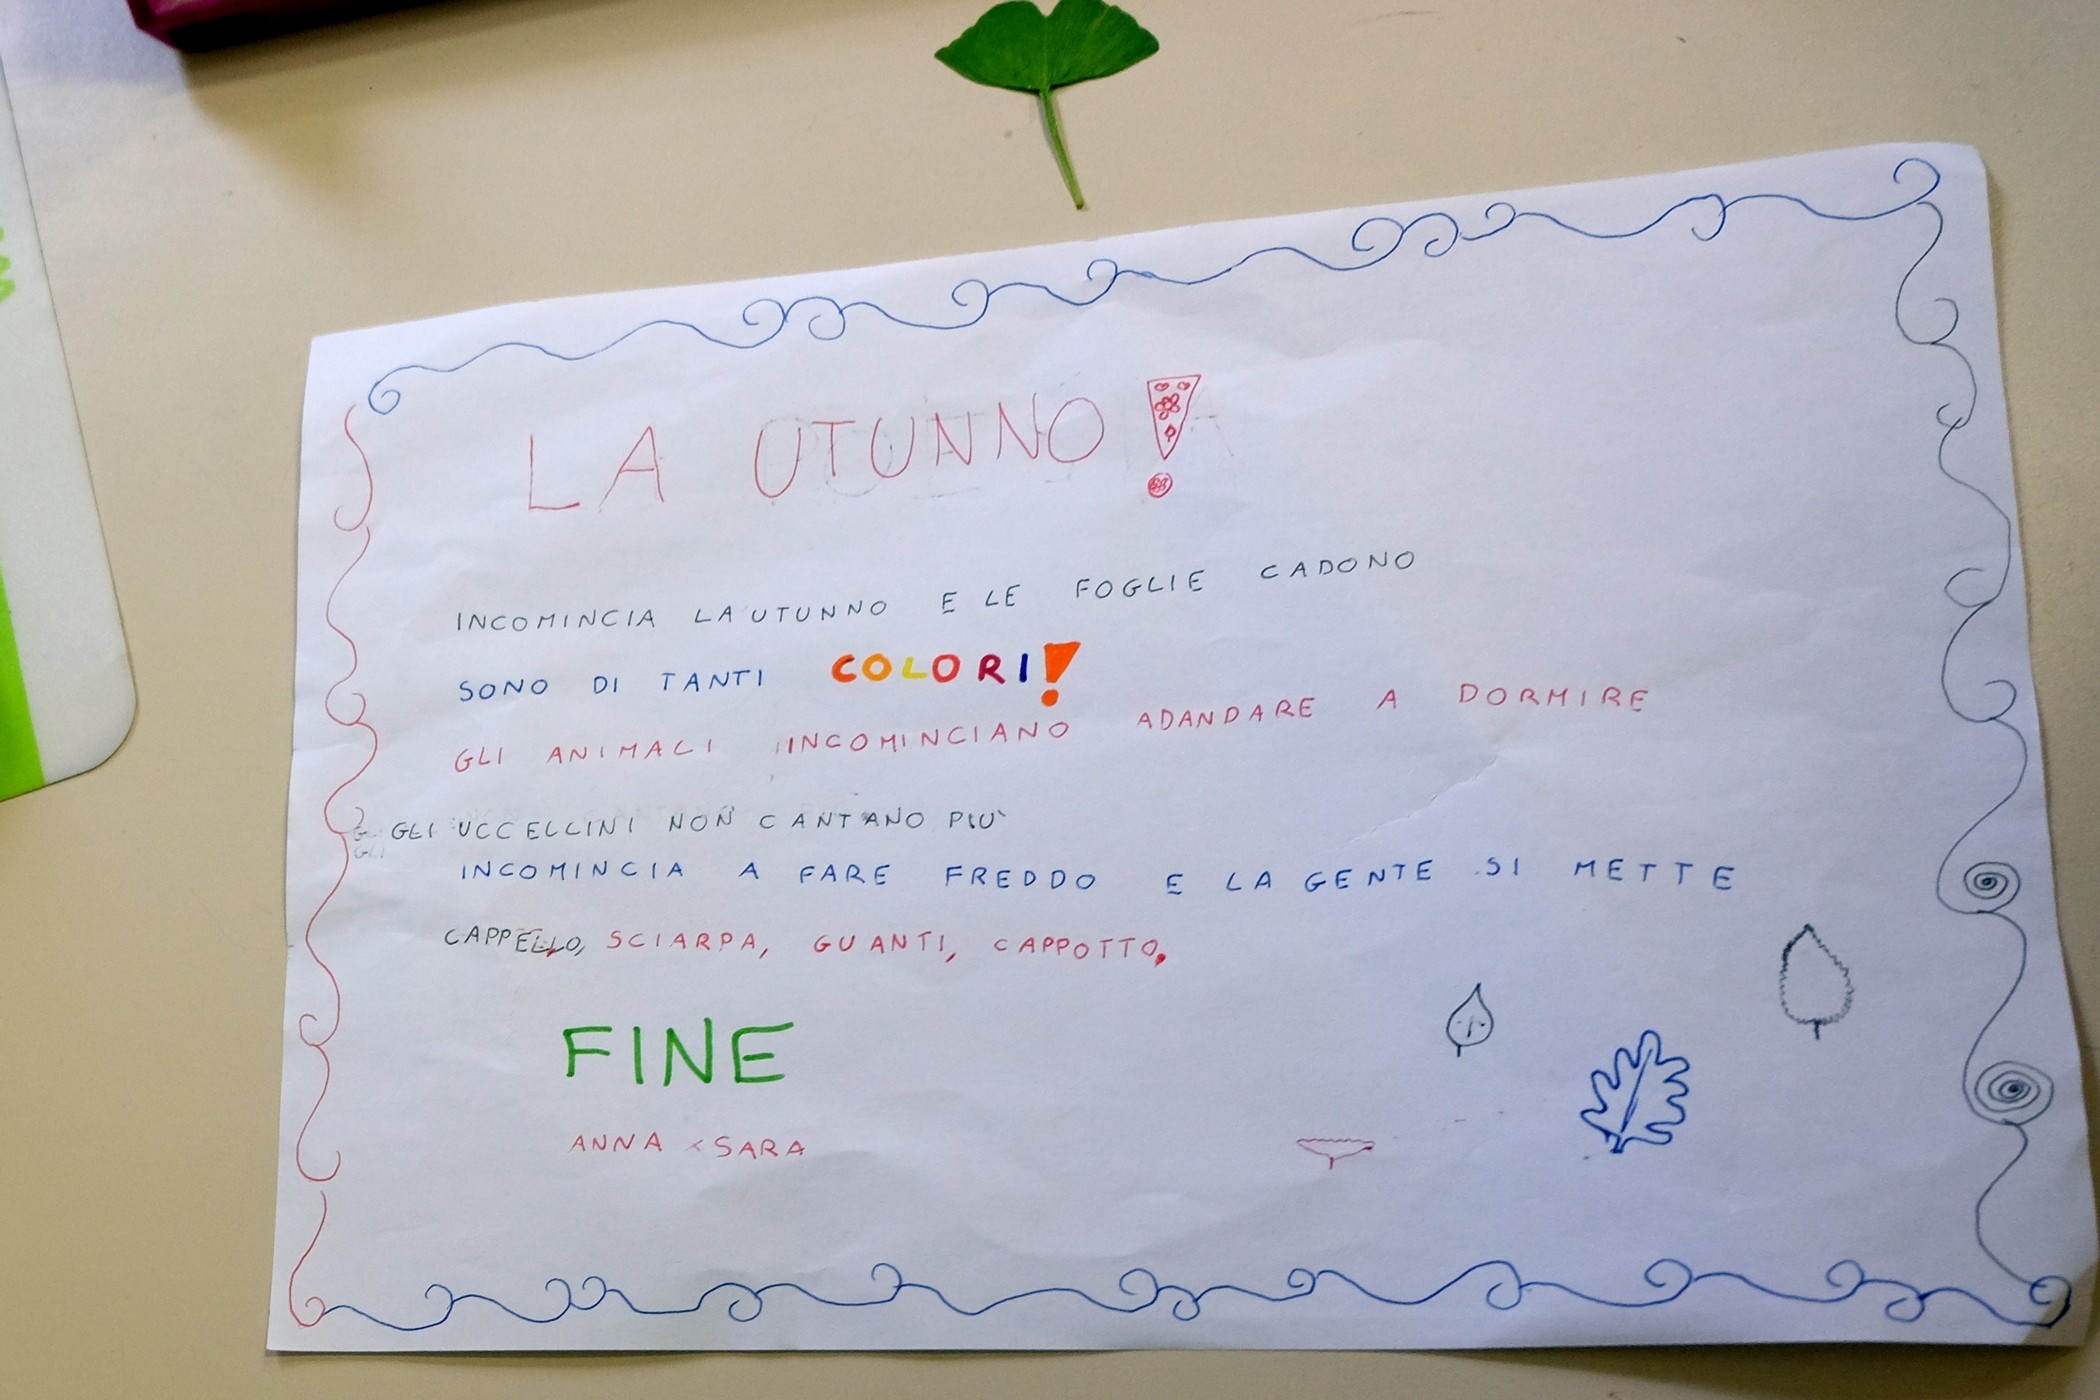 LA UTUNNO!
INCOMINCIA LAUTUNNO E LE FOGLIE CADONO
SONO DI TANTI COLORI!
GLI ANIMALI INCOMINCIANO ADANDARE A DORMIRE
GLI UCCELLINI NON CANTANO PIU`
INCOMINCIA A FARE FREDDO E LA GENTE SI METTE
CAPPELLO, SCIARPA, GUANTI, CAPPOTTO,
FINE
ANNA SARA